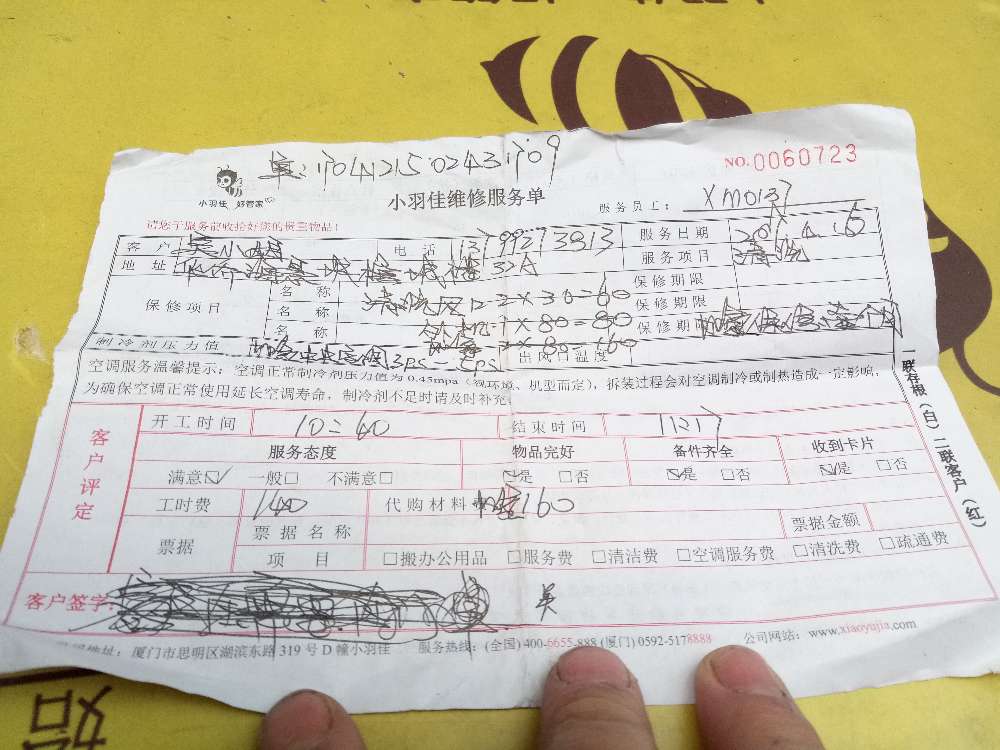 单:1704121502431709
NO.0060723
小羽佳 好管家
小羽佳维修服务单
服务员工: XM0137
请您于服务前收拾好您的贵重物品!
客户 吴小姐 电话 13799273813 服务日期
地址 32A 服务项目 清洗
保修项目 名称 清洗风口-2×30=60 保修期限
名称 外机-1×80=80 保修期限
名称 保修期限
制冷剂压力值 出风口温度
空调服务温馨提示:空调正常制冷剂压力值为0.45mpa(视环境、机型而定),拆装过程会对空调制冷或制热造成一定影响,
为确保空调正常使用延长空调寿命,制冷剂不足时请及时补充。
一联存根(白)二联客户(红)
客户评定
开工时间 10=40 结束时间
服务态度 物品完好 备件齐全 收到卡片
满意☑ 一般□ 不满意□ ☑是 □否 ☑是 □否 ☑是 □否
工时费 140 代购材料费 160
票据 票据名称 票据金额
项目 □搬办公用品 □服务费 □清洁费 □空调服务费 □清洗费 □疏通费
客户签字: 吴
地址:厦门市思明区湖滨东路319号D幢小羽佳 服务热线:(全国)400-6655-888 (厦门)0592-5178888 公司网站:www.xiaoyujia.com